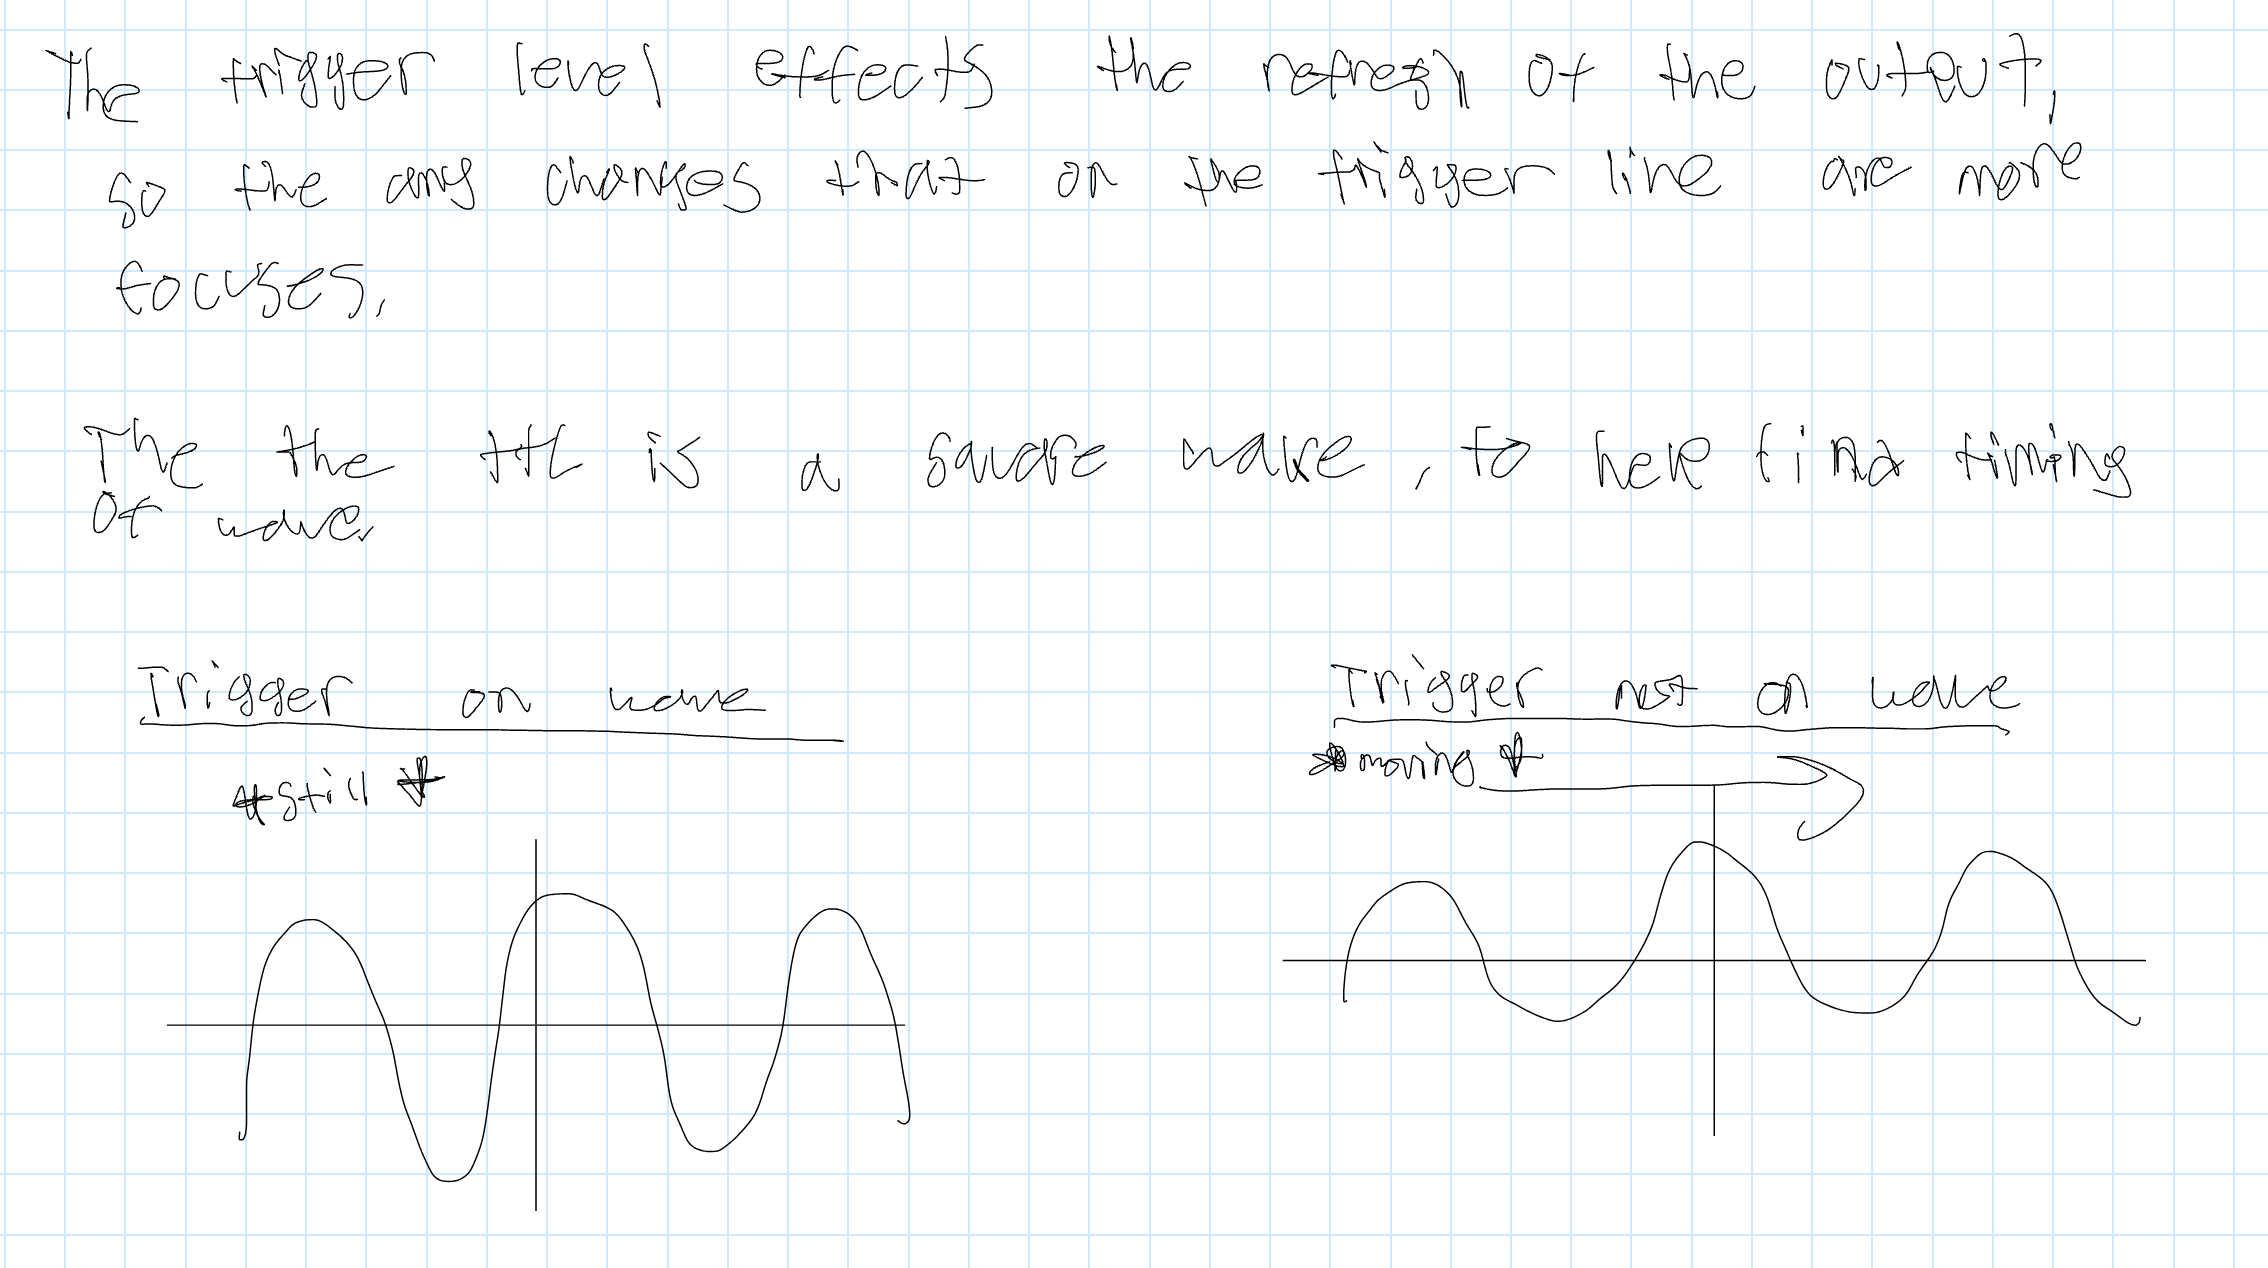 The trigger level effects the refresh of the output,
so the any changes that on the trigger line are more
focuses.
The the ttl is a square wave, to help find timing
of wave.
Trigger on wave
Trigger not on wave
*still*
*moving*